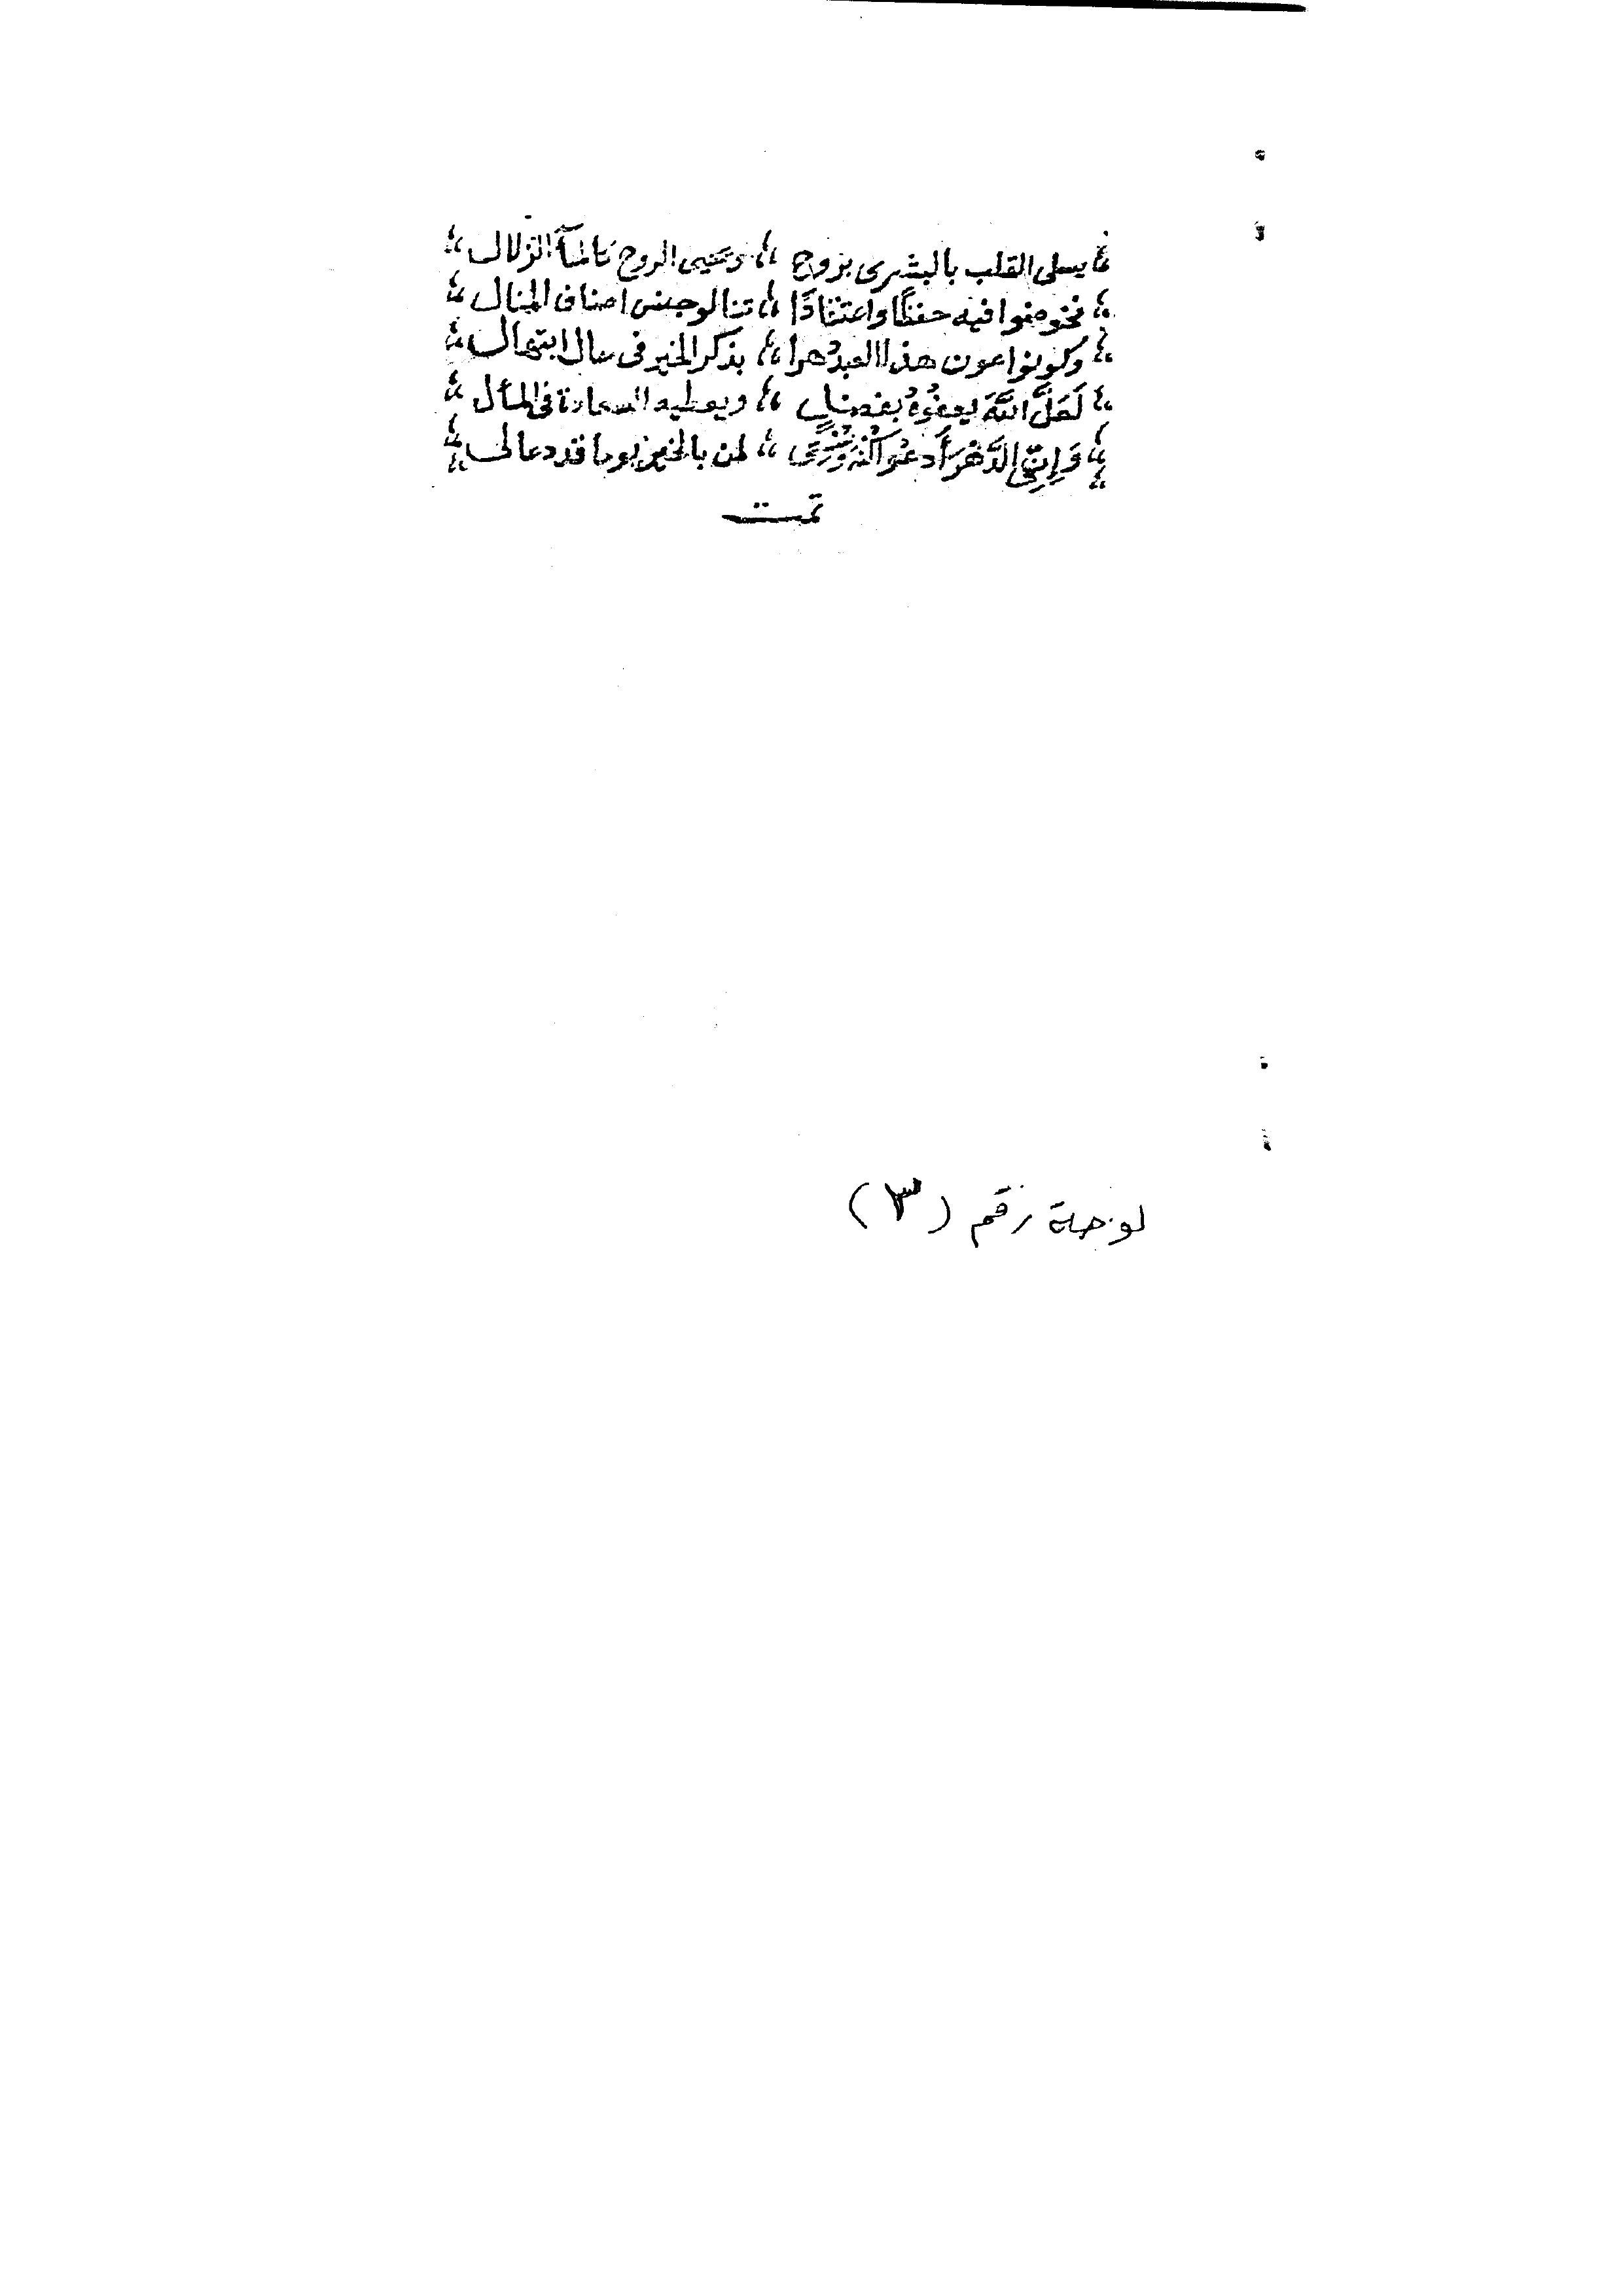 يسلى القلب بالبشرى بروح ؛ ويحيى الروح كالمآء الزلال
فخوضوا فيه حفظا واعتقادًا ؛ تنالو جنس اصناف المنال
وكونوا عون هذا العبد دهرا ؛ بذكر الخير فى حال ابتهال
لَعَلَّ اللَّهَ يعفُوهُ بفضلٍ ؛ ويعطيه السعادة فى المأل
وَإِنِّى الدَّهْرَ أَدعُو كُنْهَ وُسْعِى ؛ لمن بالخير يوما قد دعالى
تمت
لوحة رقم (٣)